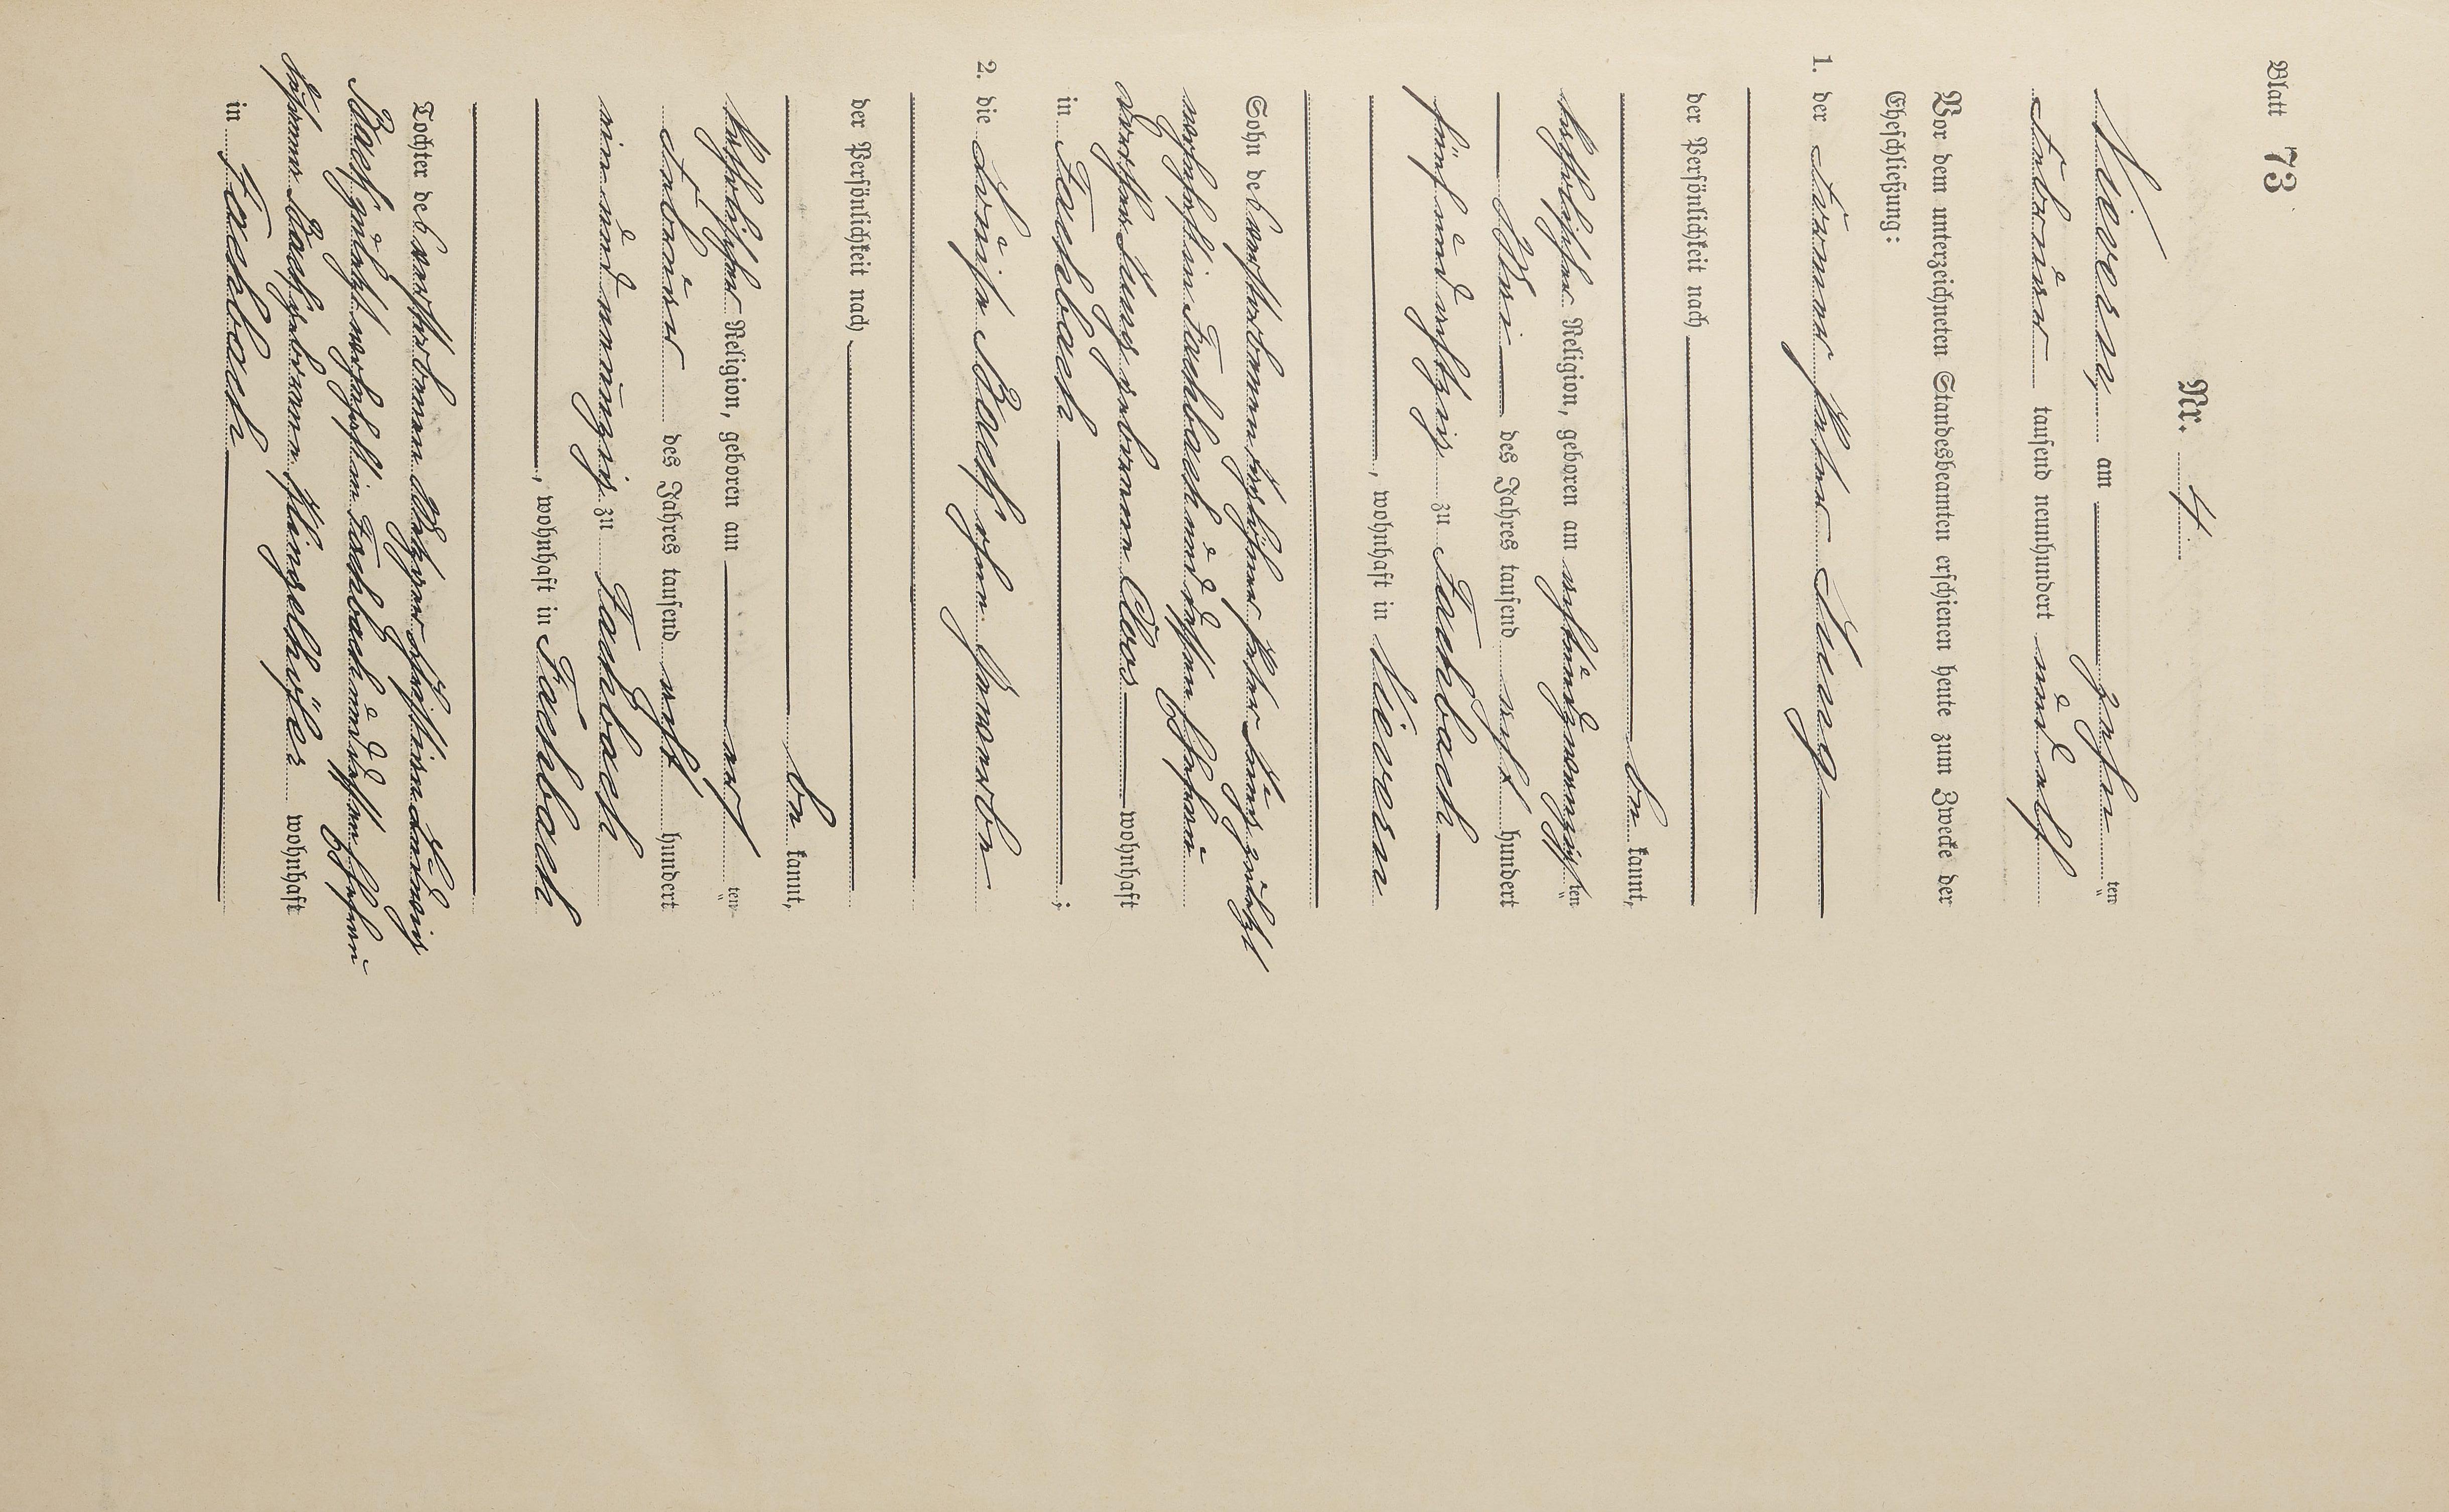 Blatt 73
Nr. 4.
Nievern, am zehn ten
Februar tausend neunhundert und elf
Vor dem unterzeichneten Standesbeamten erschienen heute zum Zwecke der
Eheschließung:
1. der Former Peter Jung
der Persönlichkeit nach
be kannt,
katholischer Religion, geboren am achtundzwanzigsten
Mai des Jahres tausend acht hundert
fünfundachtzig zu Fachbach
, wohnhaft in Nievern
Sohn des verstorbenen Taglöhner Peter Jung zuletzt
wohnhaft in Fachbach und dessen Ehefrau
Dorothea Jung geborenen Cloos wohnhaft
in Fachbach ;
2. die Luise Bach ohne Gewerbe
der Persönlichkeit nach
be kannt,
katholischer Religion, geboren am ten
Februar des Jahres tausend acht hundert
einundneunzig zu Fachbach
, wohnhaft in Fachbach
Tochter des verstorbenen Metzger Christian Ludwig
Bach zuletzt wohnhaft in Fachbach und dessen Ehefrau
Bach geborenen Klingelhöfer wohnhaft
in Fachbach